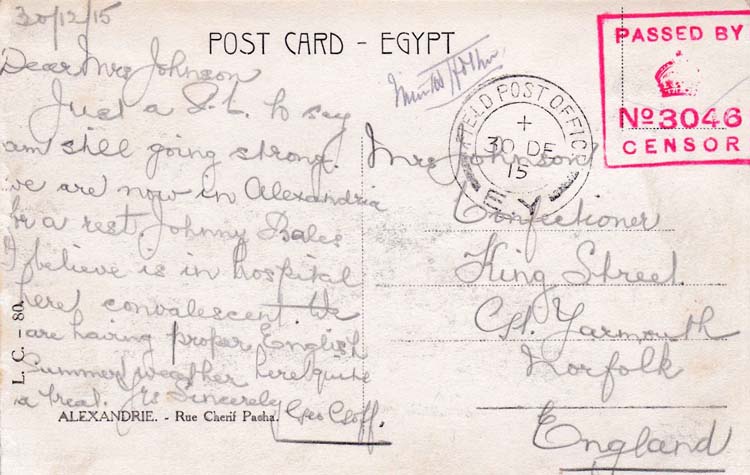 30/12/15
POST CARD - EGYPT
Dear Mrs Johnson
Just a S. L. to say
am still going strong.
we are now in Alexandria
for a rest. Johnny Bales
I believe is in hospital
here convalescent. We
are having proper English
Summer weather here quite
a treat. Yrs Sincerely
Geo
L. C. - 80.
ALEXANDRIE. - Rue Cherif Pacha.
FIELD POST OFFICE
30 DE
15
E Y
PASSED BY
No 3046
CENSOR
Mrs Johnson
Confectioner
King Street
Gt. Yarmouth
Norfolk
England